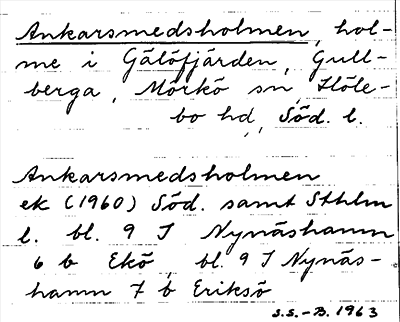 Ankarsmedsholmen, hol-
me i Gälöfjärden, Gull-
berga, Mörkö sn, Höle-
bo hd, Söd. l.
Ankarsmedsholmen
ek (1960) Söd. samt Sthlm
l. bl. 9 I Nynäshamn
6 b Ekö, bl. 9 I Nynäs-
hamn 7 b Eriksö
S.S.-B. 1963